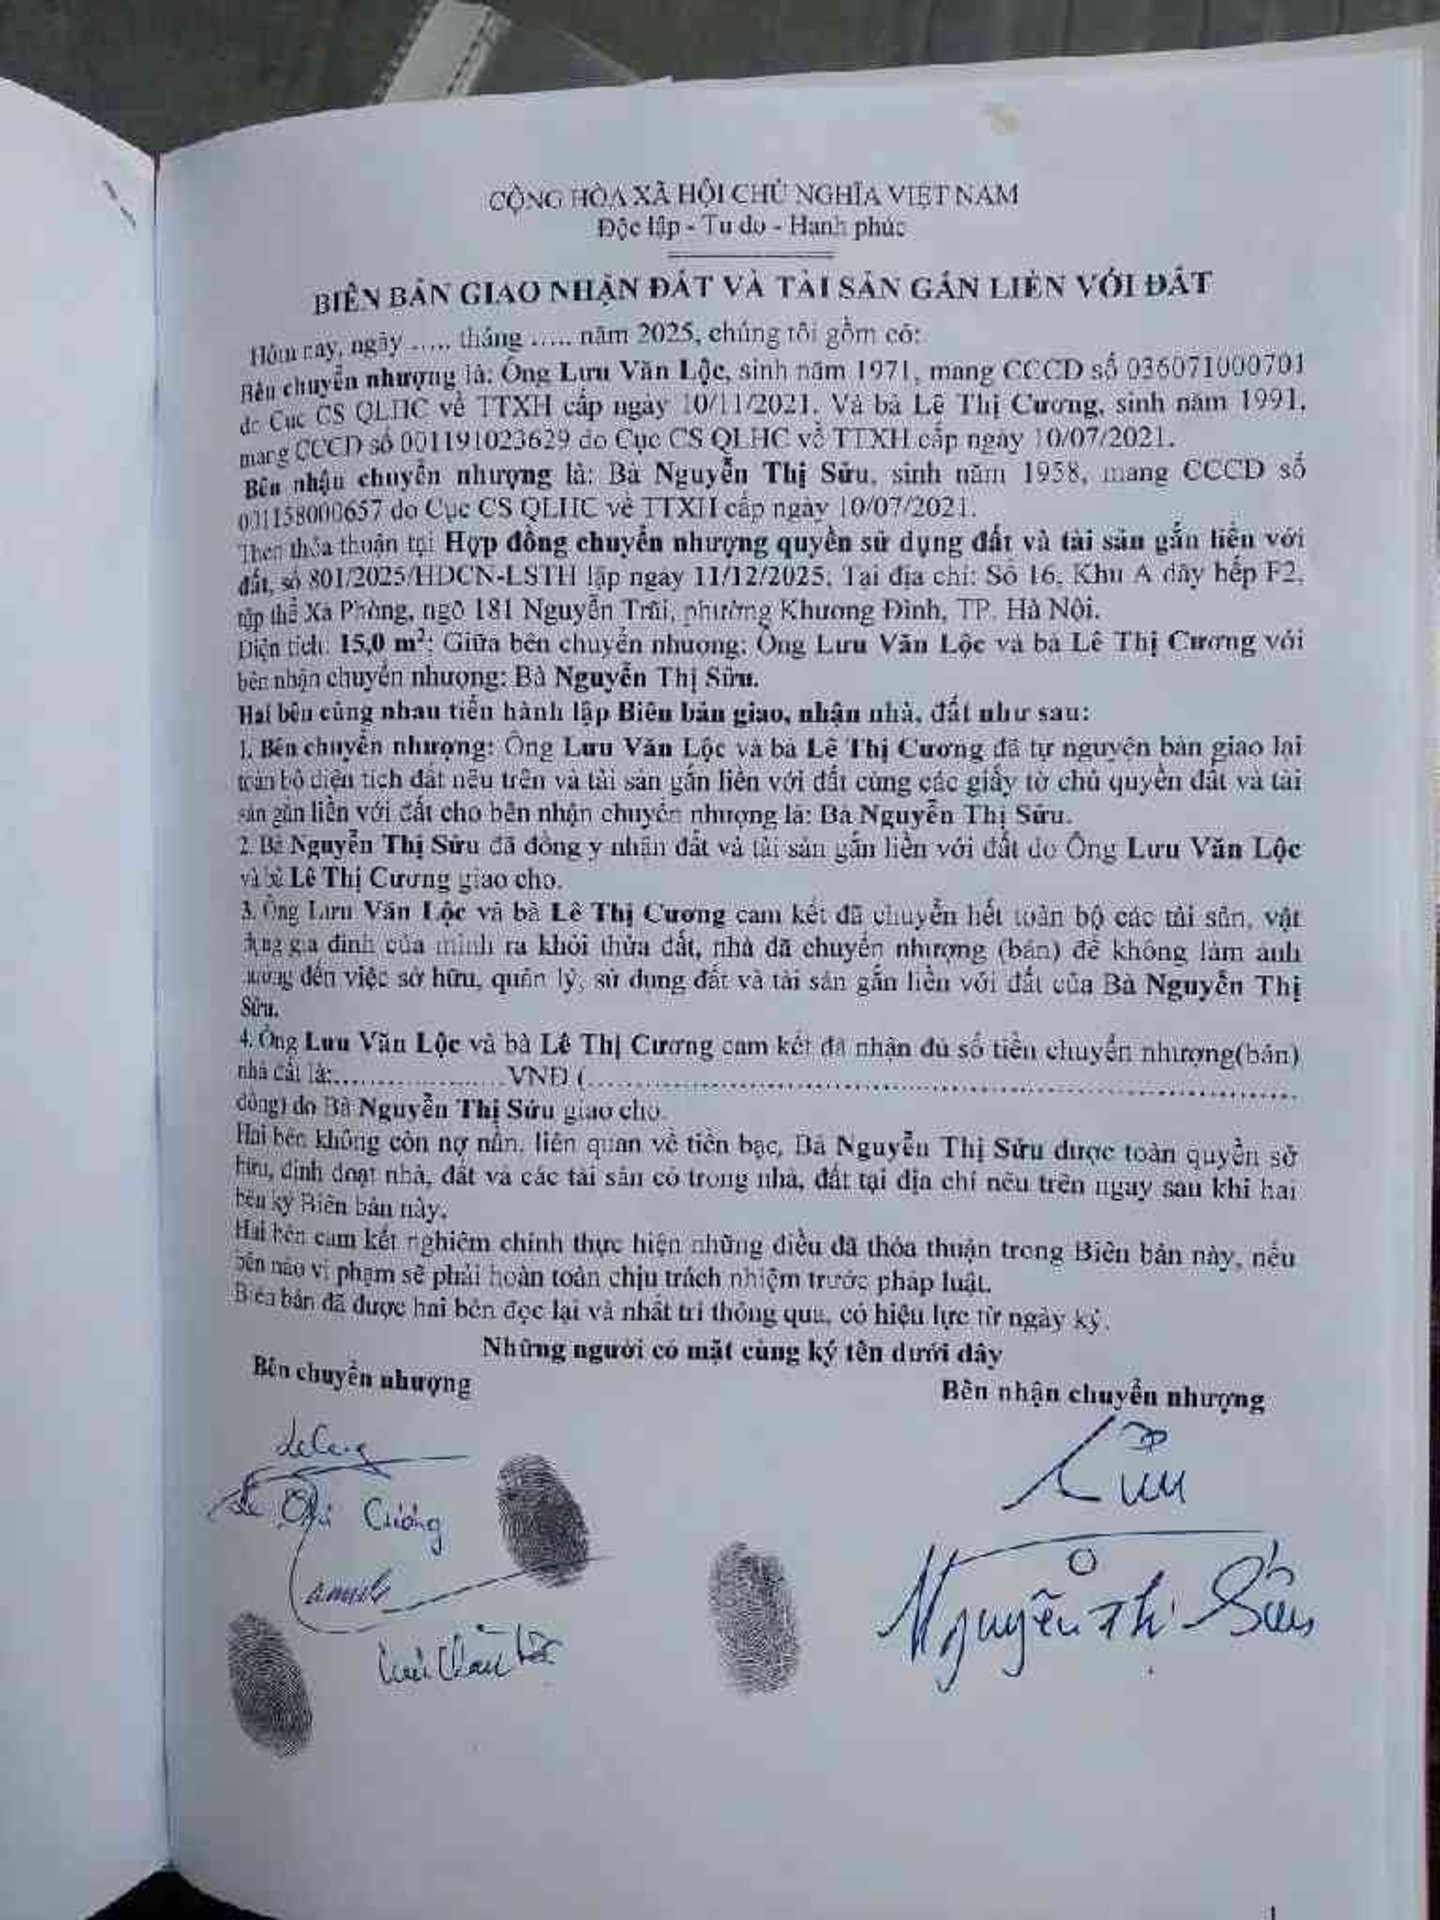 CỘNG HÒA XÃ HỘI CHỦ NGHĨA VIỆT NAM
Độc lập - Tự do - Hạnh phúc
BIÊN BẢN GIAO NHẬN ĐẤT VÀ TÀI SẢN GẮN LIỀN VỚI ĐẤT
Hôm nay, ngày ..... tháng ..... năm 2025, chúng tôi gồm có:
Bên chuyển nhượng là: Ông Lưu Văn Lộc, sinh năm 1971, mang CCCD số 036071000701
do Cục CS QLHC về TTXH cấp ngày 10/11/2021. Và bà Lê Thị Cương, sinh năm 1991,
mang CCCD số 001191023629 do Cục CS QLHC về TTXH cấp ngày 10/07/2021.
Bên nhận chuyển nhượng là: Bà Nguyễn Thị Sửu, sinh năm 1958, mang CCCD số
001158000657 do Cục CS QLHC về TTXH cấp ngày 10/07/2021.
Theo thỏa thuận tại Hợp đồng chuyển nhượng quyền sử dụng đất và tài sản gắn liền với
đất, số 801/2025/HDCN-LSTH lập ngày 11/12/2025. Tại địa chỉ: Số 16, Khu A dãy hếp F2,
tập thể Xà Phòng, ngõ 181 Nguyễn Trãi, phường Khương Đình, TP. Hà Nội.
Diện tích: 15,0 m²; Giữa bên chuyển nhượng: Ông Lưu Văn Lộc và bà Lê Thị Cương với
bên nhận chuyển nhượng: Bà Nguyễn Thị Sửu.
Hai bên cùng nhau tiến hành lập Biên bản giao, nhận nhà, đất như sau:
1. Bên chuyển nhượng: Ông Lưu Văn Lộc và bà Lê Thị Cương đã tự nguyện bàn giao lại
toàn bộ diện tích đất nêu trên và tài sản gắn liền với đất cùng các giấy tờ chủ quyền đất và tài
sản gắn liền với đất cho bên nhận chuyển nhượng là: Bà Nguyễn Thị Sửu.
2. Bà Nguyễn Thị Sửu đã đồng ý nhận đất và tài sản gắn liền với đất do Ông Lưu Văn Lộc
và bà Lê Thị Cương giao cho.
3. Ông Lưu Văn Lộc và bà Lê Thị Cương cam kết đã chuyển hết toàn bộ các tài sản, vật
dụng gia đình của mình ra khỏi thửa đất, nhà đã chuyển nhượng (bán) để không làm ảnh
hưởng đến việc sở hữu, quản lý, sử dụng đất và tài sản gắn liền với đất của Bà Nguyễn Thị
Sửu.
4. Ông Lưu Văn Lộc và bà Lê Thị Cương cam kết đã nhận đủ số tiền chuyển nhượng(bán)
nhà đất là:.................... VNĐ (................................................................................
đồng) do Bà Nguyễn Thị Sửu giao cho.
Hai bên không còn nợ nần, liên quan về tiền bạc, Bà Nguyễn Thị Sửu được toàn quyền sở
hữu, định đoạt nhà, đất và các tài sản có trong nhà, đất tại địa chỉ nêu trên ngay sau khi hai
bên ký Biên bản này.
Hai bên cam kết nghiêm chỉnh thực hiện những điều đã thỏa thuận trong Biên bản này, nếu
bên nào vi phạm sẽ phải hoàn toàn chịu trách nhiệm trước pháp luật.
Biên bản đã được hai bên đọc lại và nhất trí thông qua, có hiệu lực từ ngày ký.
Những người có mặt cùng ký tên dưới đây
Bên chuyển nhượng
Bên nhận chuyển nhượng
Sửu
Lê Thị Cương
Nguyễn Thị Sửu
Lưu Văn Lộc
1